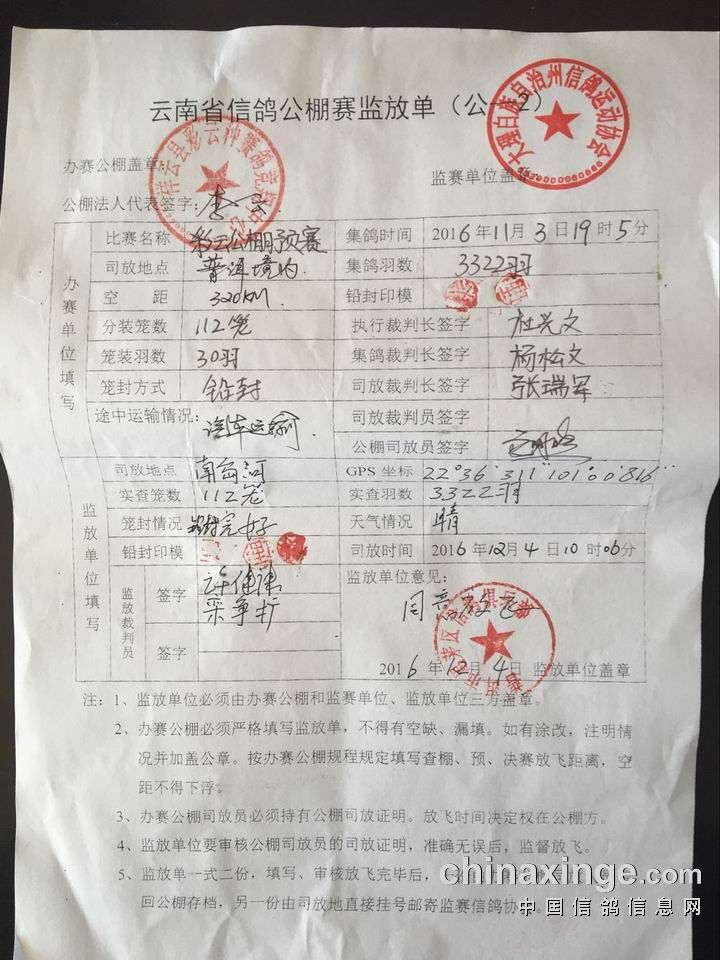 云南省信鸽公棚赛监放单（公—2）
大理白族自治州信鸽运动协会
祥云县彩云种赛鸽竞翔中心
办赛公棚盖章：
监赛单位盖章：
公棚法人代表签字：
办赛单位填写
比赛名称 彩云公棚预赛 集鸽时间 2016年11月3日19时5分
司放地点 普洱境内 集鸽羽数 3322羽
空 距 320KM 铅封印模
分装笼数 112笼 执行裁判长签字 杜兴文
笼装羽数 30羽 集鸽裁判长签字 杨松文
笼封方式 铅封 司放裁判长签字 张瑞军
途中运输情况： 汽车运输 司放裁判员签字
公棚司放员签字
监放单位填写
司放地点 南岛河 GPS 坐标 22°36′311″101°00′816″
实查笼数 112笼 实查羽数 3322羽
笼封情况 铅封完好 天气情况 晴
铅封印模 司放时间 2016年12月4日10时06分
监放裁判员
签字
签字
监放单位意见：
同意放飞
2016年12月4日 监放单位盖章
注：1、监放单位必须由办赛公棚和监赛单位、监放单位三方盖章。
2、办赛公棚必须严格填写监放单，不得有空缺、漏填。如有涂改，注明情
况并加盖公章。按办赛公棚规程规定填写查棚、预、决赛放飞距离，空
距不得下浮。
3、办赛公棚司放员必须持有公棚司放证明。放飞时间决定权在公棚方。
4、监放单位要审核公棚司放员的司放证明，准确无误后，监督放飞。
5、监放单一式二份，填写、审核放飞完毕后，
回公棚存档，另一份由司放地直接挂号邮寄监赛信鸽协
chinaxinge.com
中国信鸽信息网